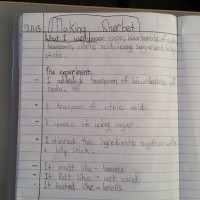 Making Sherbet
What I used: paper cups, bicarbonate of soda,
teaspoons, citric acid, icing sugar and lolly
sticks.
The experiment.
- I added 1 teaspoon of bicarbonate of
soda.
- 1 teaspoon of citric acid.
- spoons of icing sugar.
- I stirred the ingredients together with
a lolly stick.
- It smelt like - lemons
- It felt like - wet sand
- It tasted like - lemons.